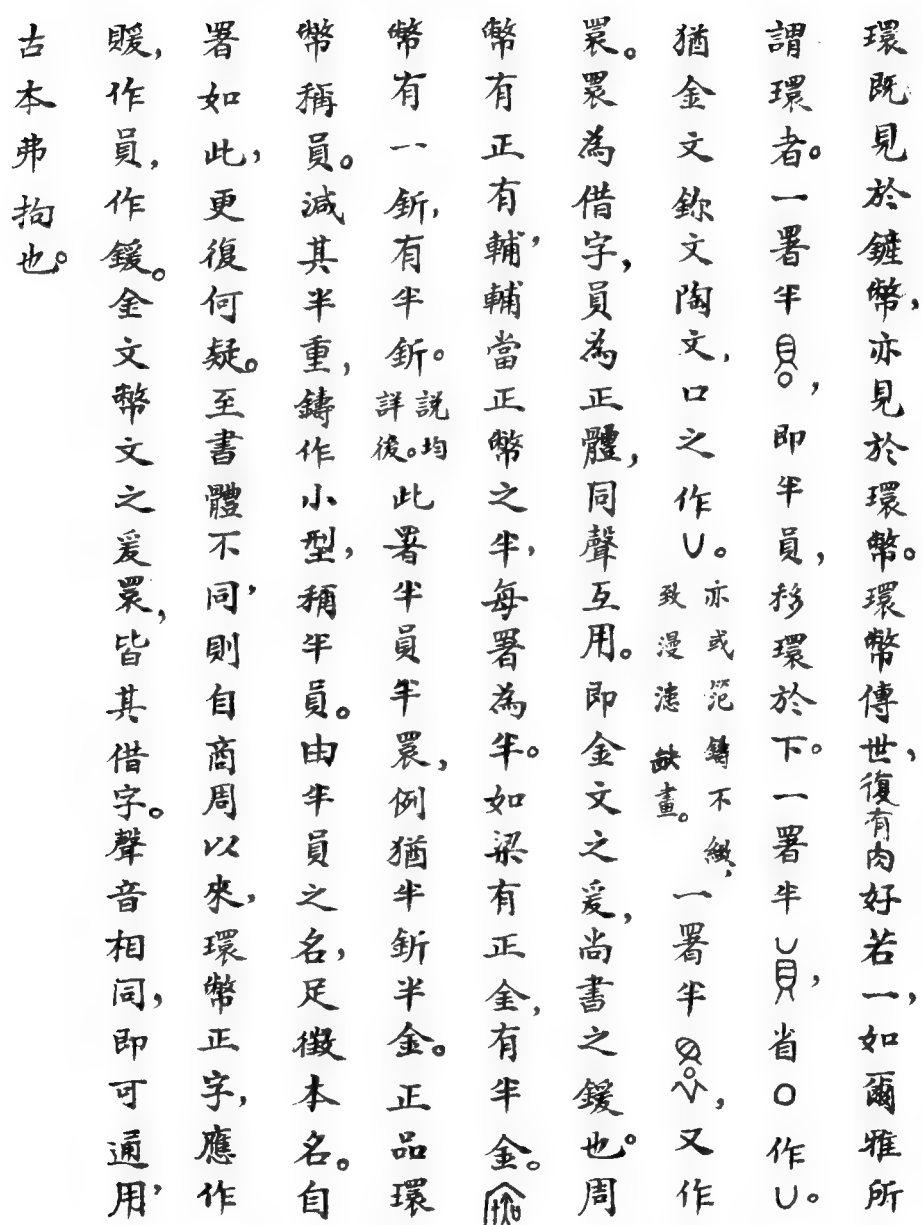 環既見於鏟幣，亦見於環幣。環幣傳世，復有肉好若一，如爾雅所
謂環者。一署半，即半員，移環於下。一署半，省〇作凵。
猶金文鉨文陶文，口之作凵。亦或笵鑄不緻，致漫漶缺畫。一署半，又作
睘。睘為借字，員為正體，同聲互用。即金文之爰，尚書之鍰也。周
幣有正有輔，輔當正幣之半，每署為半。如梁有正金，有半金。
幣有一釿，有半釿。說均詳後。此署半員半睘，例猶半釿半金。正品環
幣稱員。減其半重，鑄作小型，稱半員。由半員之名，足徵本名。自
署如此，更復何疑。至書體不同，則自商周以來，環幣正字，應作
賏，作員，作鍰。金文幣文之爰睘，皆其借字。聲音相同，即可通用，
古本弗拘也。